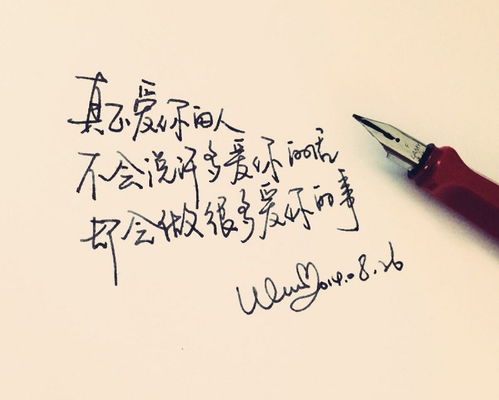 真正爱你的人
不会说许多爱你的话
却会做很多爱你的事
2014.8.26
LAMY